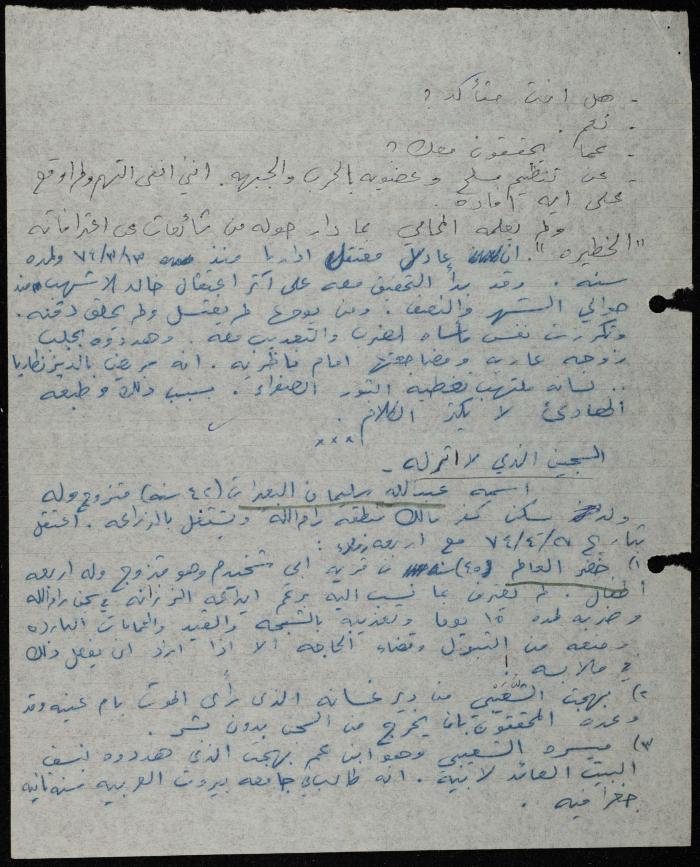 - هل انت متأكد؟
- نعم.
- عما يحققون معك؟
- عن تنظيم مسلح وعضويه بالحزب والجبهه. انني انفي التهم ولم اوقع
على ايه افاده.
ولم تعلمه المحامي بما دار حوله من شائعات عن اعترافاته
"الخطيره". ان عادل معتقل اداريا منذ ٧٤/٣/١٣ ولمده
سنه. وقد بدأ التحقيق معه على اثر اعتقال خالد الاشهب منذ
حوالي الشهر والنصف. ومن يومها لم يغتسل ولم يحلق ذقنه.
وتكررت نفس مأساه الضرب والتعذيب معه. وهددوه بجلب
زوجه عاريه ومضاجعتها امام ناظريه. انه مريض
.. لسانه ملتهب تغطيه الصفراء. بسبب ذلك وطبعه
الهادئ لا يكثر الكلام.
***
السجين الذي لا اثر له -
اسمه عبدالله سليمان (٤٢ سنه) متزوج وله
ولد سكن كفر مالك منطقه رام الله ويشتغل بالزراعه. اعتقل
بتاريخ ٧٤/٤/٢٧ مع اربعه زملاء:
١) خضر العالم (٤٥) سنه من قريه ابي شخيدم وهو متزوج وله اربعه
اطفال. لم يعترف بما نسب اليه برغم الزنزانه في سجن رام الله
وضربه لمده ١٥ يوما وتعذيبه بالشبحه والقيد والحمامات البارده
ومنعه من التبول وقضاء الحاجه الا اذا اراد ان يفعل ذلك
في ملابسه.
٢) بهجت الشعيبي من دير غسانه الذي رأى الموت بام عينه وقد
وعده المحققون بان يخرج من السجن بدون
٣) ميسره الشعيبي وهو ابن عم بهجت الذي هددوه بنسف
البيت العائد لابيه. انه طالب في جامعه بيروت العربيه سنه ثانيه
جغرافيه.